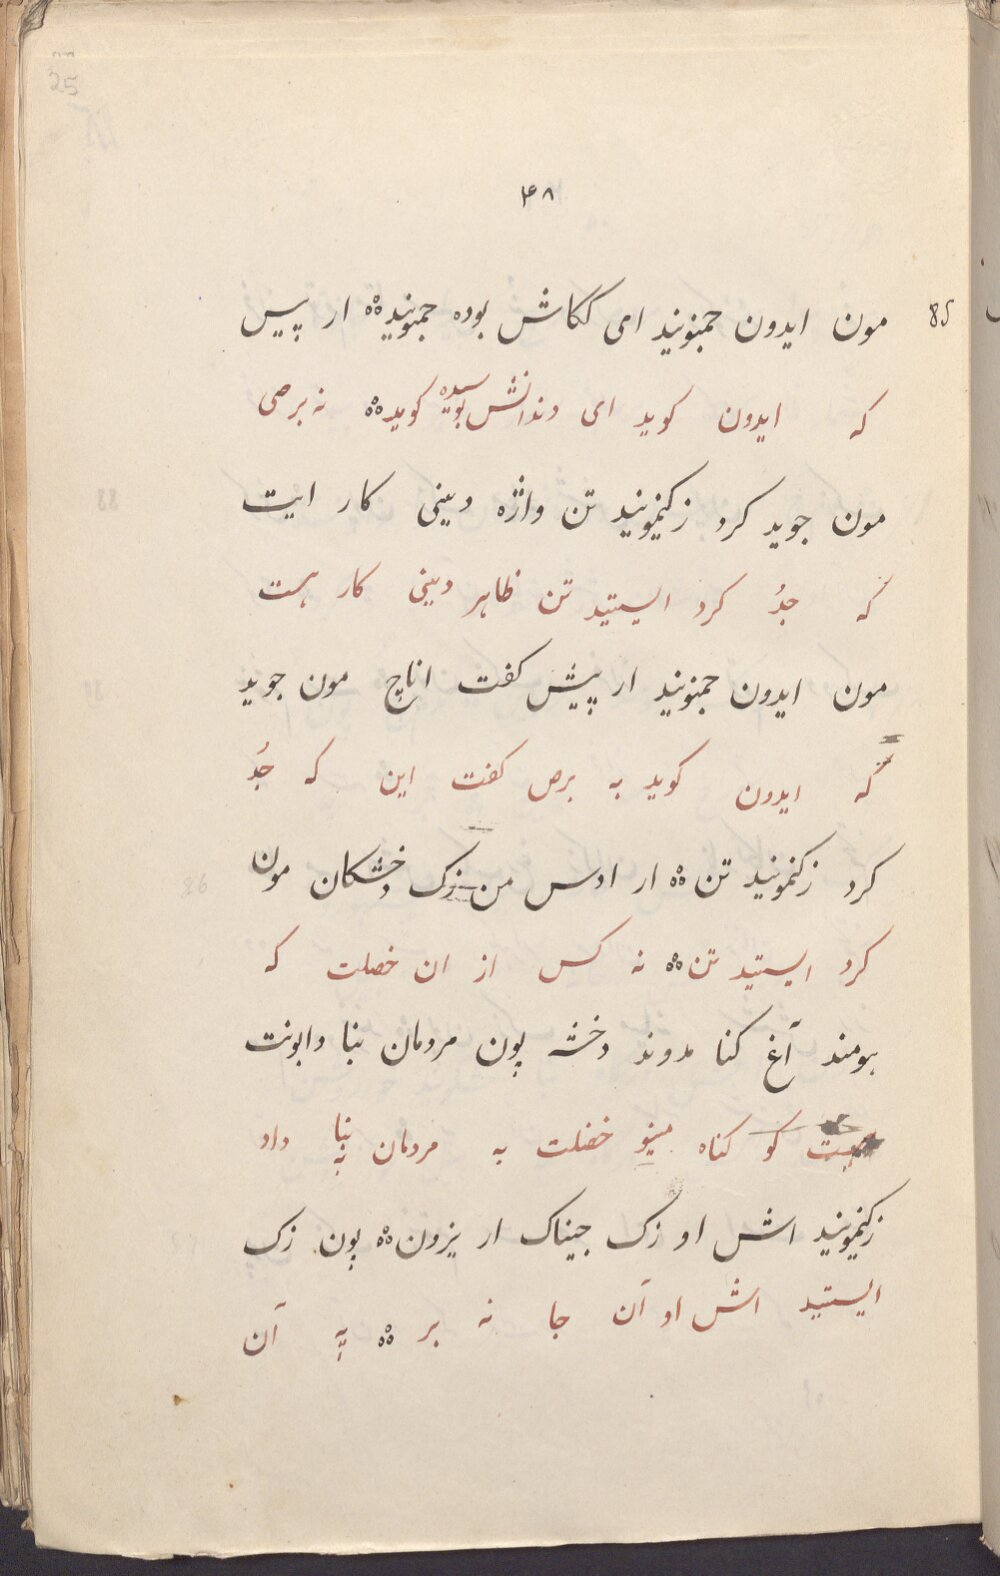 25
۴۸
85 مون ایدون جمنونید امی ککاش بوده جمنونید ار پیس
که ایدون کوید ای دندانش بوسیده کوید نه برصی
مون جوید کرد زکنیمونید تن واژه دینی کار ایت
که جدُ کرد ایستید تن ظاهر دینی کار هست
مون ایدون جمنونید ار پیش کفت اناچ مون جوید
که ایدون کوید به برص کفت این که جُد
کرد زکنمونید تن ار ادس من زک دخشکان مون
کرد ایستید تن نه کس از ان خصلت که
هومند آغ کنا مدوند دخشه پون مردمان بنا دابونت
هست کو کناه مینو خصلت به مردمان بنا به داد
زکنیمونید اش او زک جیناک ار یزرون پون زک
ایستید اش او آن جا نه بر په آن